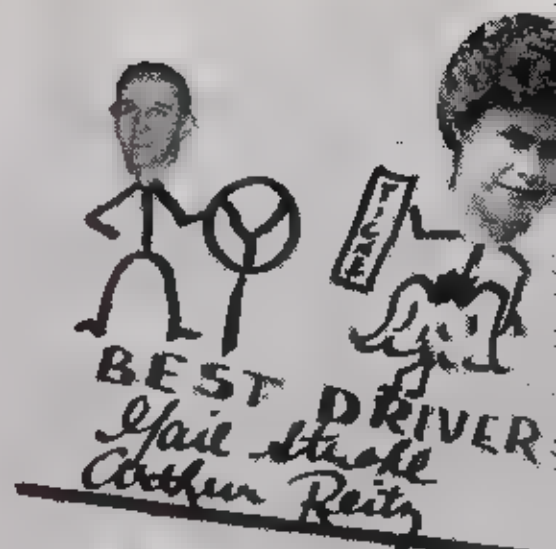 TICKE
BEST DRIVERS
Gail
Arthur Reitz